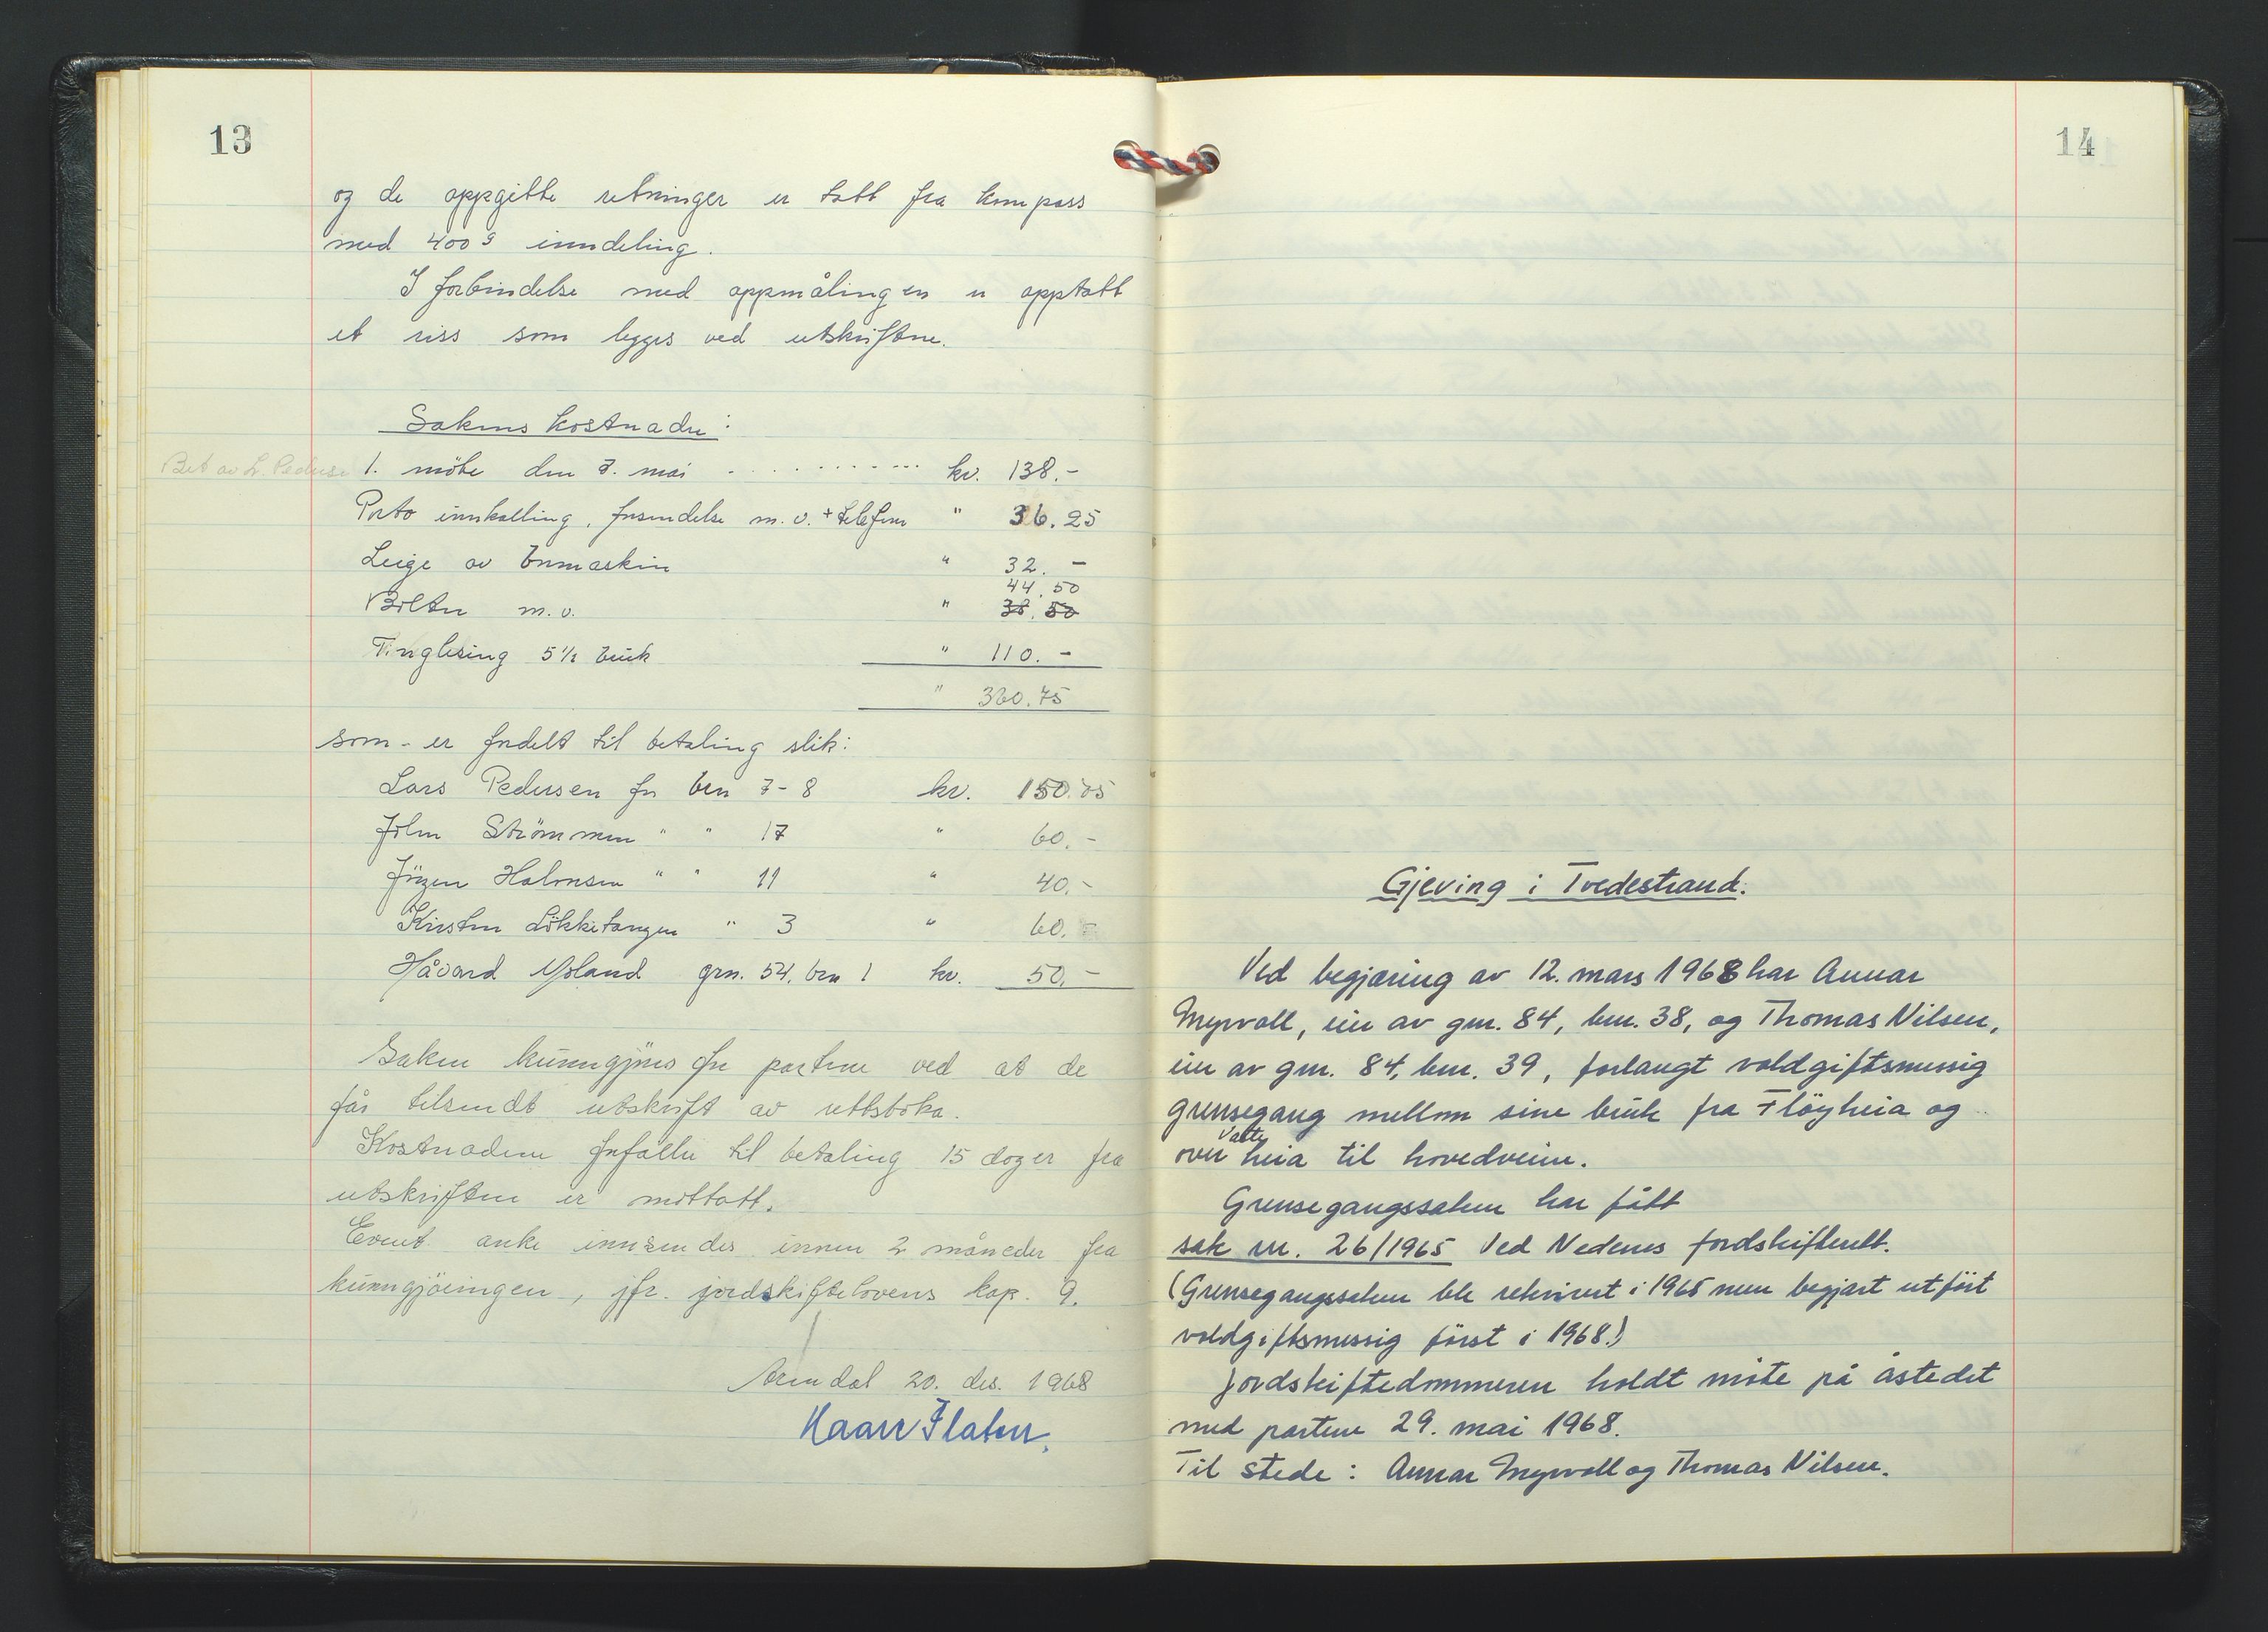 13
og de oppgitte retninger er tatt fra kompass
med 400 g inndeling.
I forbindelse med oppmålingen er opptatt
et riss som legges ved utskriftene.
Sakens kostnader:
Bet av L. Pedersen 1. möte den 7. mai .......... kr. 138.-
Porto innkalling, forsendelse m.v. + telefon " 36.25
Leige av bormaskin " 32.-
44.50
Bolter m.v. " 38.50
Tinglesing 5 1/2 bruk " 110.-
" 360.75
som er fordelt til betaling slik:
Lars Pedersen for bnr 7-8 kr. 150.75
John Strömmen " " 17 " 60.-
Jörgen Halvorsen " " 11 " 40.-
Kirsten Lökketangen " 3 " 60.-
Håvard Ysland grn. 54, bnr 1 kr. 50.-
Saken kunngjöres for partene ved at de
får tilsendt utskrift av rettsboka.
Kostnadene forfaller til betaling 15 dager fra
utskriften er mottatt.
Event anke innsendes innen 2 måneder fra
kunngjöringen, jfr. jordskiftelovens kap. 9.
Arendal 20. des. 1968
14
Gjeving i Tvedestrand.
Ved begjæring av 12. mars 1968 har Annar
Myrvoll, eier av gnr. 84, bnr. 38, og Thomas Nilsen,
eier av gnr. 84, bnr. 39, forlangt voldgiftsmessig
grensegang mellom sine bruk fra Flöyheia og
Vatte
over heia til hovedveien.
Grensegangssaken har fått
sak nr. 26/1965 ved Nedenes jordskifterett.
(Grensegangssaken ble rekvirert i 1965 men begjært utfört
voldgiftsmessig först i 1968.)
Jordskiftedommeren holdt möte på åstedet
med partene 29. mai 1968.
Til stede: Annar Myrvoll og Thomas Nilsen.